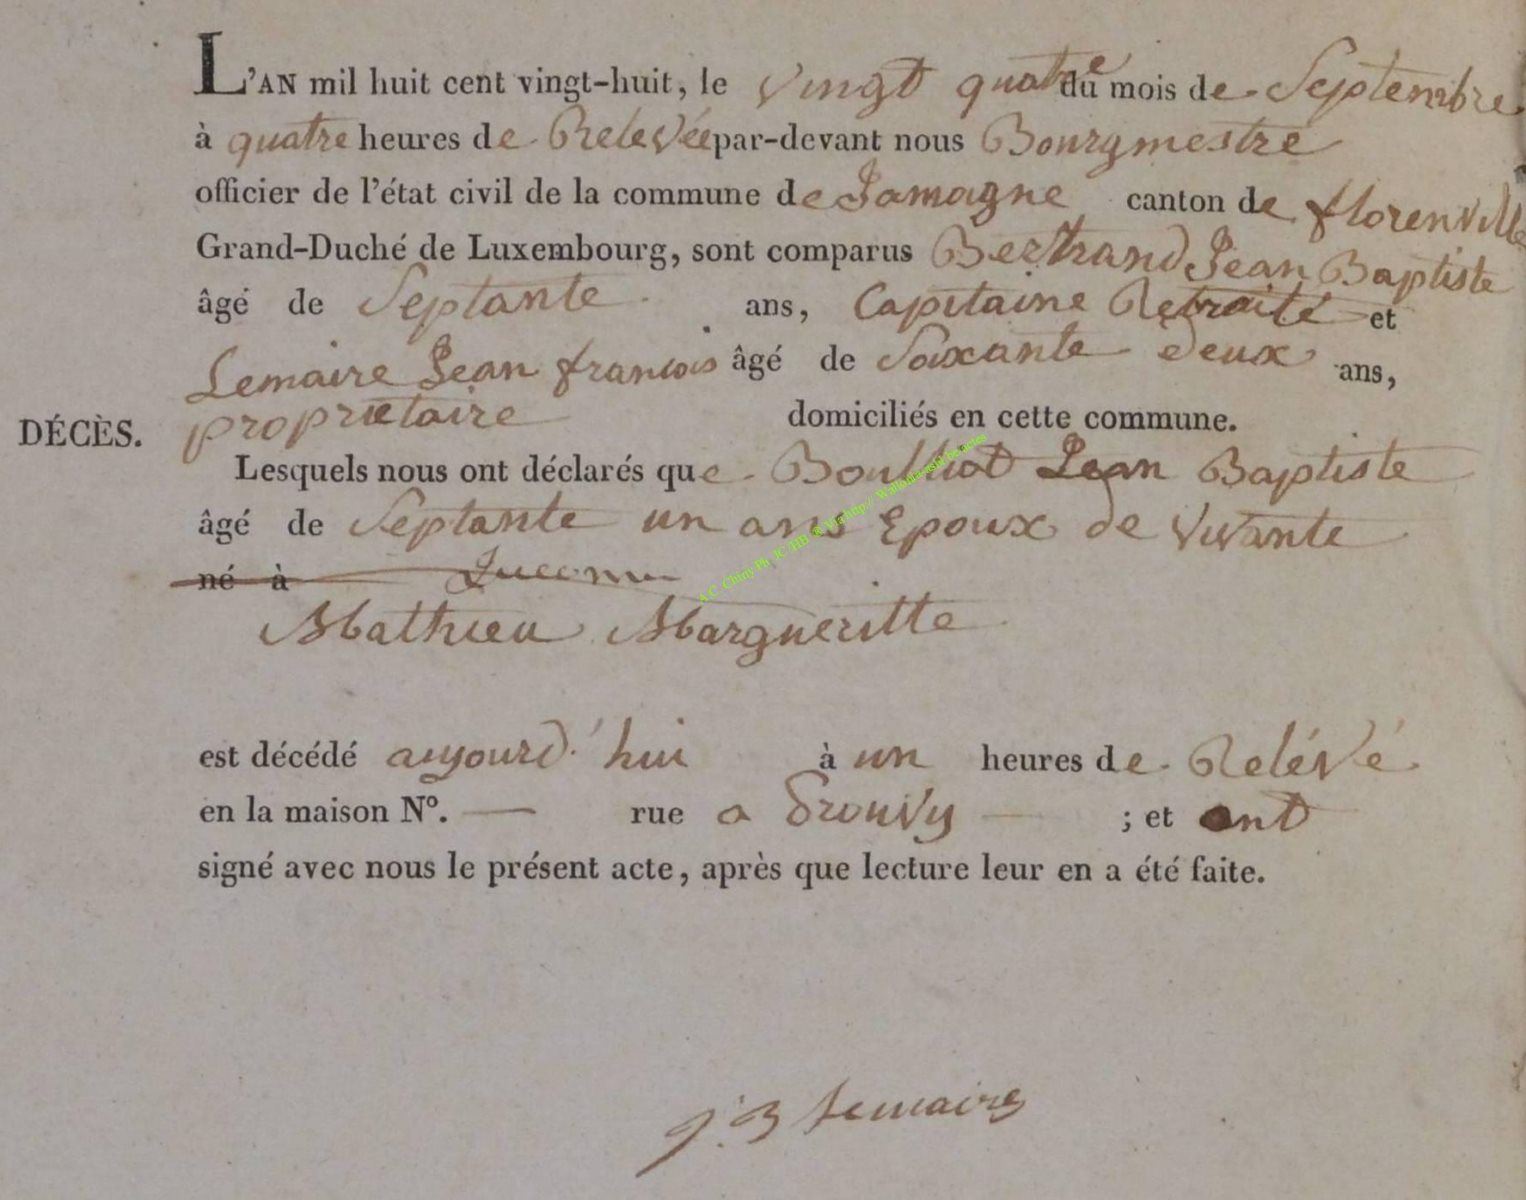 L'AN mil huit cent vingt-huit, le vingt quatre du mois de Septembre
à quatre heures de Relevée par-devant nous Bourgmestre
officier de l'état civil de la commune de Jamogne canton de florenville
Grand-Duché de Luxembourg, sont comparus Bertrand Jean Baptiste
âgé de Septante ans, Capitaine Retraité et
Lemaire Jean francois âgé de Soixante deux ans,
propriétaire domiciliés en cette commune.
DÉCÈS.
Lesquels nous ont déclarés que Jean Baptiste
âgé de Septante un ans Epoux de Vivante
né à
Mathieu Margueritte
est décédé aujourd'hui à un heures de Relévé
en la maison N°. — rue a Prouvy — ; et ont
signé avec nous le présent acte, après que lecture leur en a été faite.
j. B Lemaire